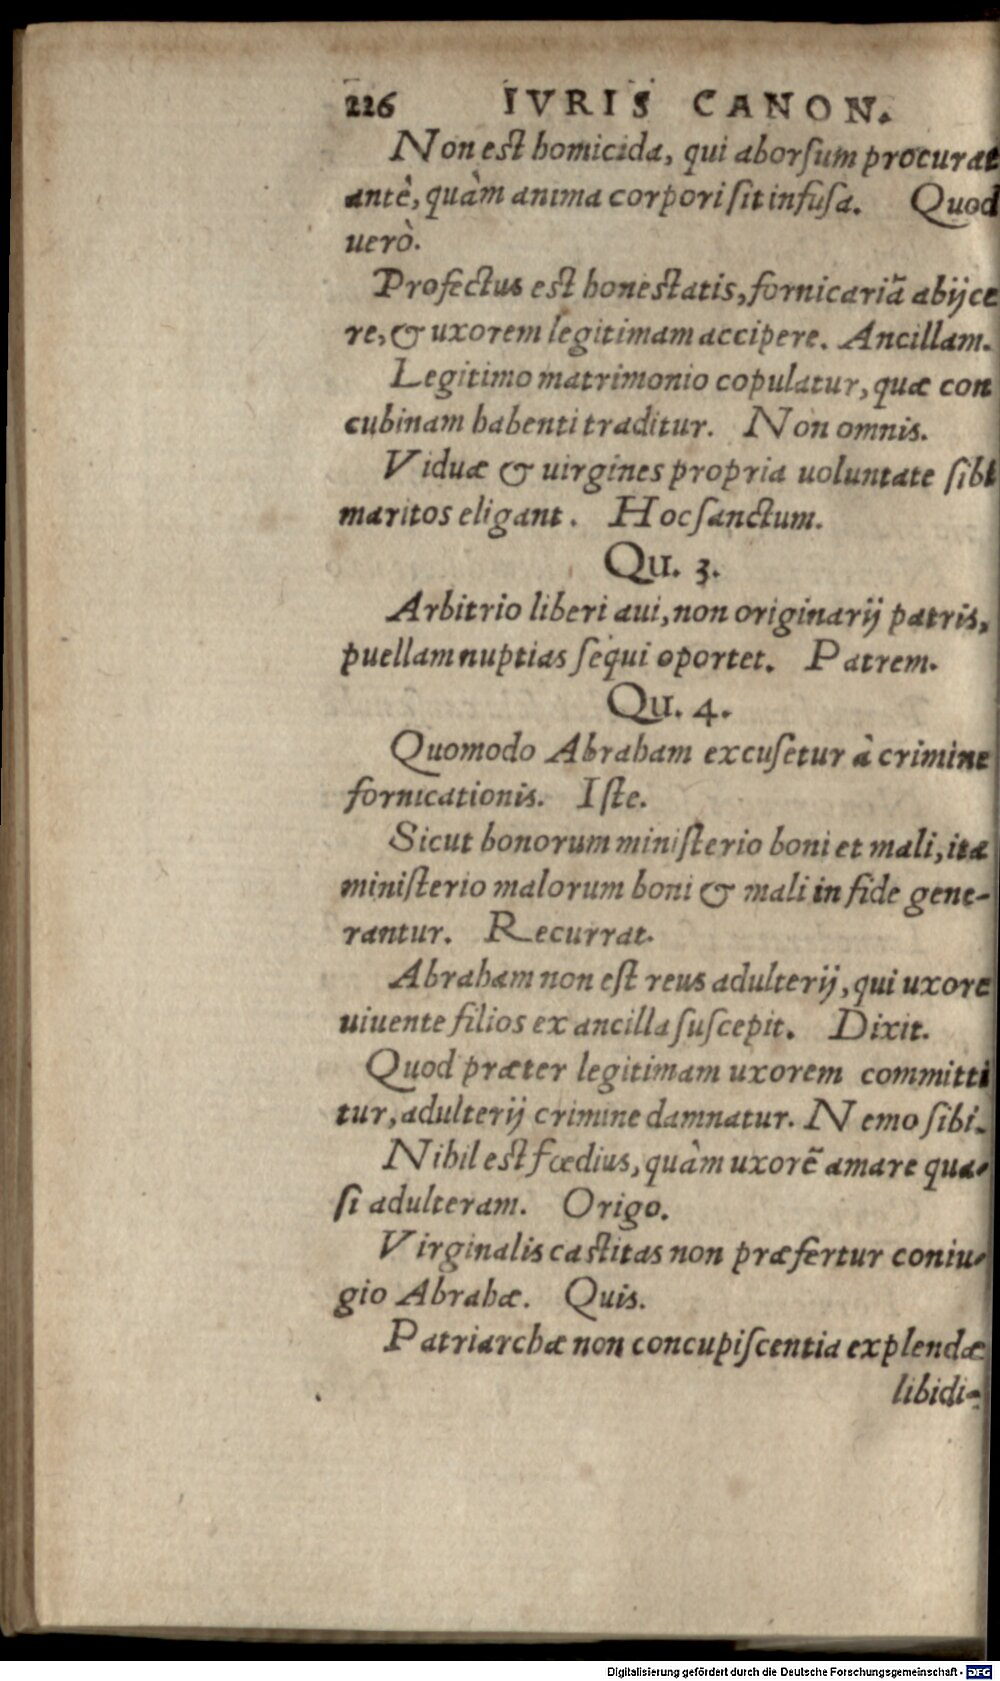 226 IVRIS CANON.
Non est homicida, qui aborſum procurat
antè, quàm anima corpori ſit infuſa. Quod
uerò.
Profectus est honestatis, fornicariā abijce
re, & uxorem legitimam accipere. Ancillam.
Legitimo matrimonio copulatur, quæ con
cubinam habenti traditur. Non omnis.
Viduæ & uirgines propria uoluntate ſibi
maritos eligant. Hoc ſanctum.
Qu. 3.
Arbitrio liberi aui, non originarij patris,
puellam nuptias ſequi oportet. Patrem.
Qu. 4.
Quomodo Abraham excuſetur à crimine
fornicationis. Iſte.
Sicut bonorum miniſterio boni et mali, ita
miniſterio malorum boni & mali in fide gene-
rantur. Recurrat.
Abraham non eſt reus adulterij, qui uxore
uiuente filios ex ancilla ſuſcepit. Dixit.
Quod præter legitimam uxorem committi
tur, adulterij crimine damnatur. Nemo ſibi.
Nihil est fœdius, quàm uxorē amare qua-
ſi adulteram. Origo.
Virginalis castitas non præfertur coniu-
gio Abrahæ. Quis.
Patriarchæ non concupiſcentia explendæ
libidi-
Digitalisierung gefördert durch die Deutsche Forschungsgemeinschaft - DFG